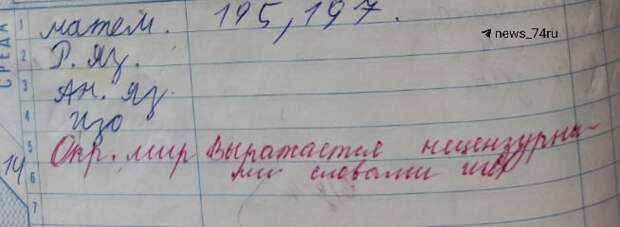 news_74ru
СРЕДА
14
1 матем. 195, 197.
2 Р. яз.
3 Ан. яз.
4 изо
5 Окр. мир Выражается нецензурны-
6 ми словами
7